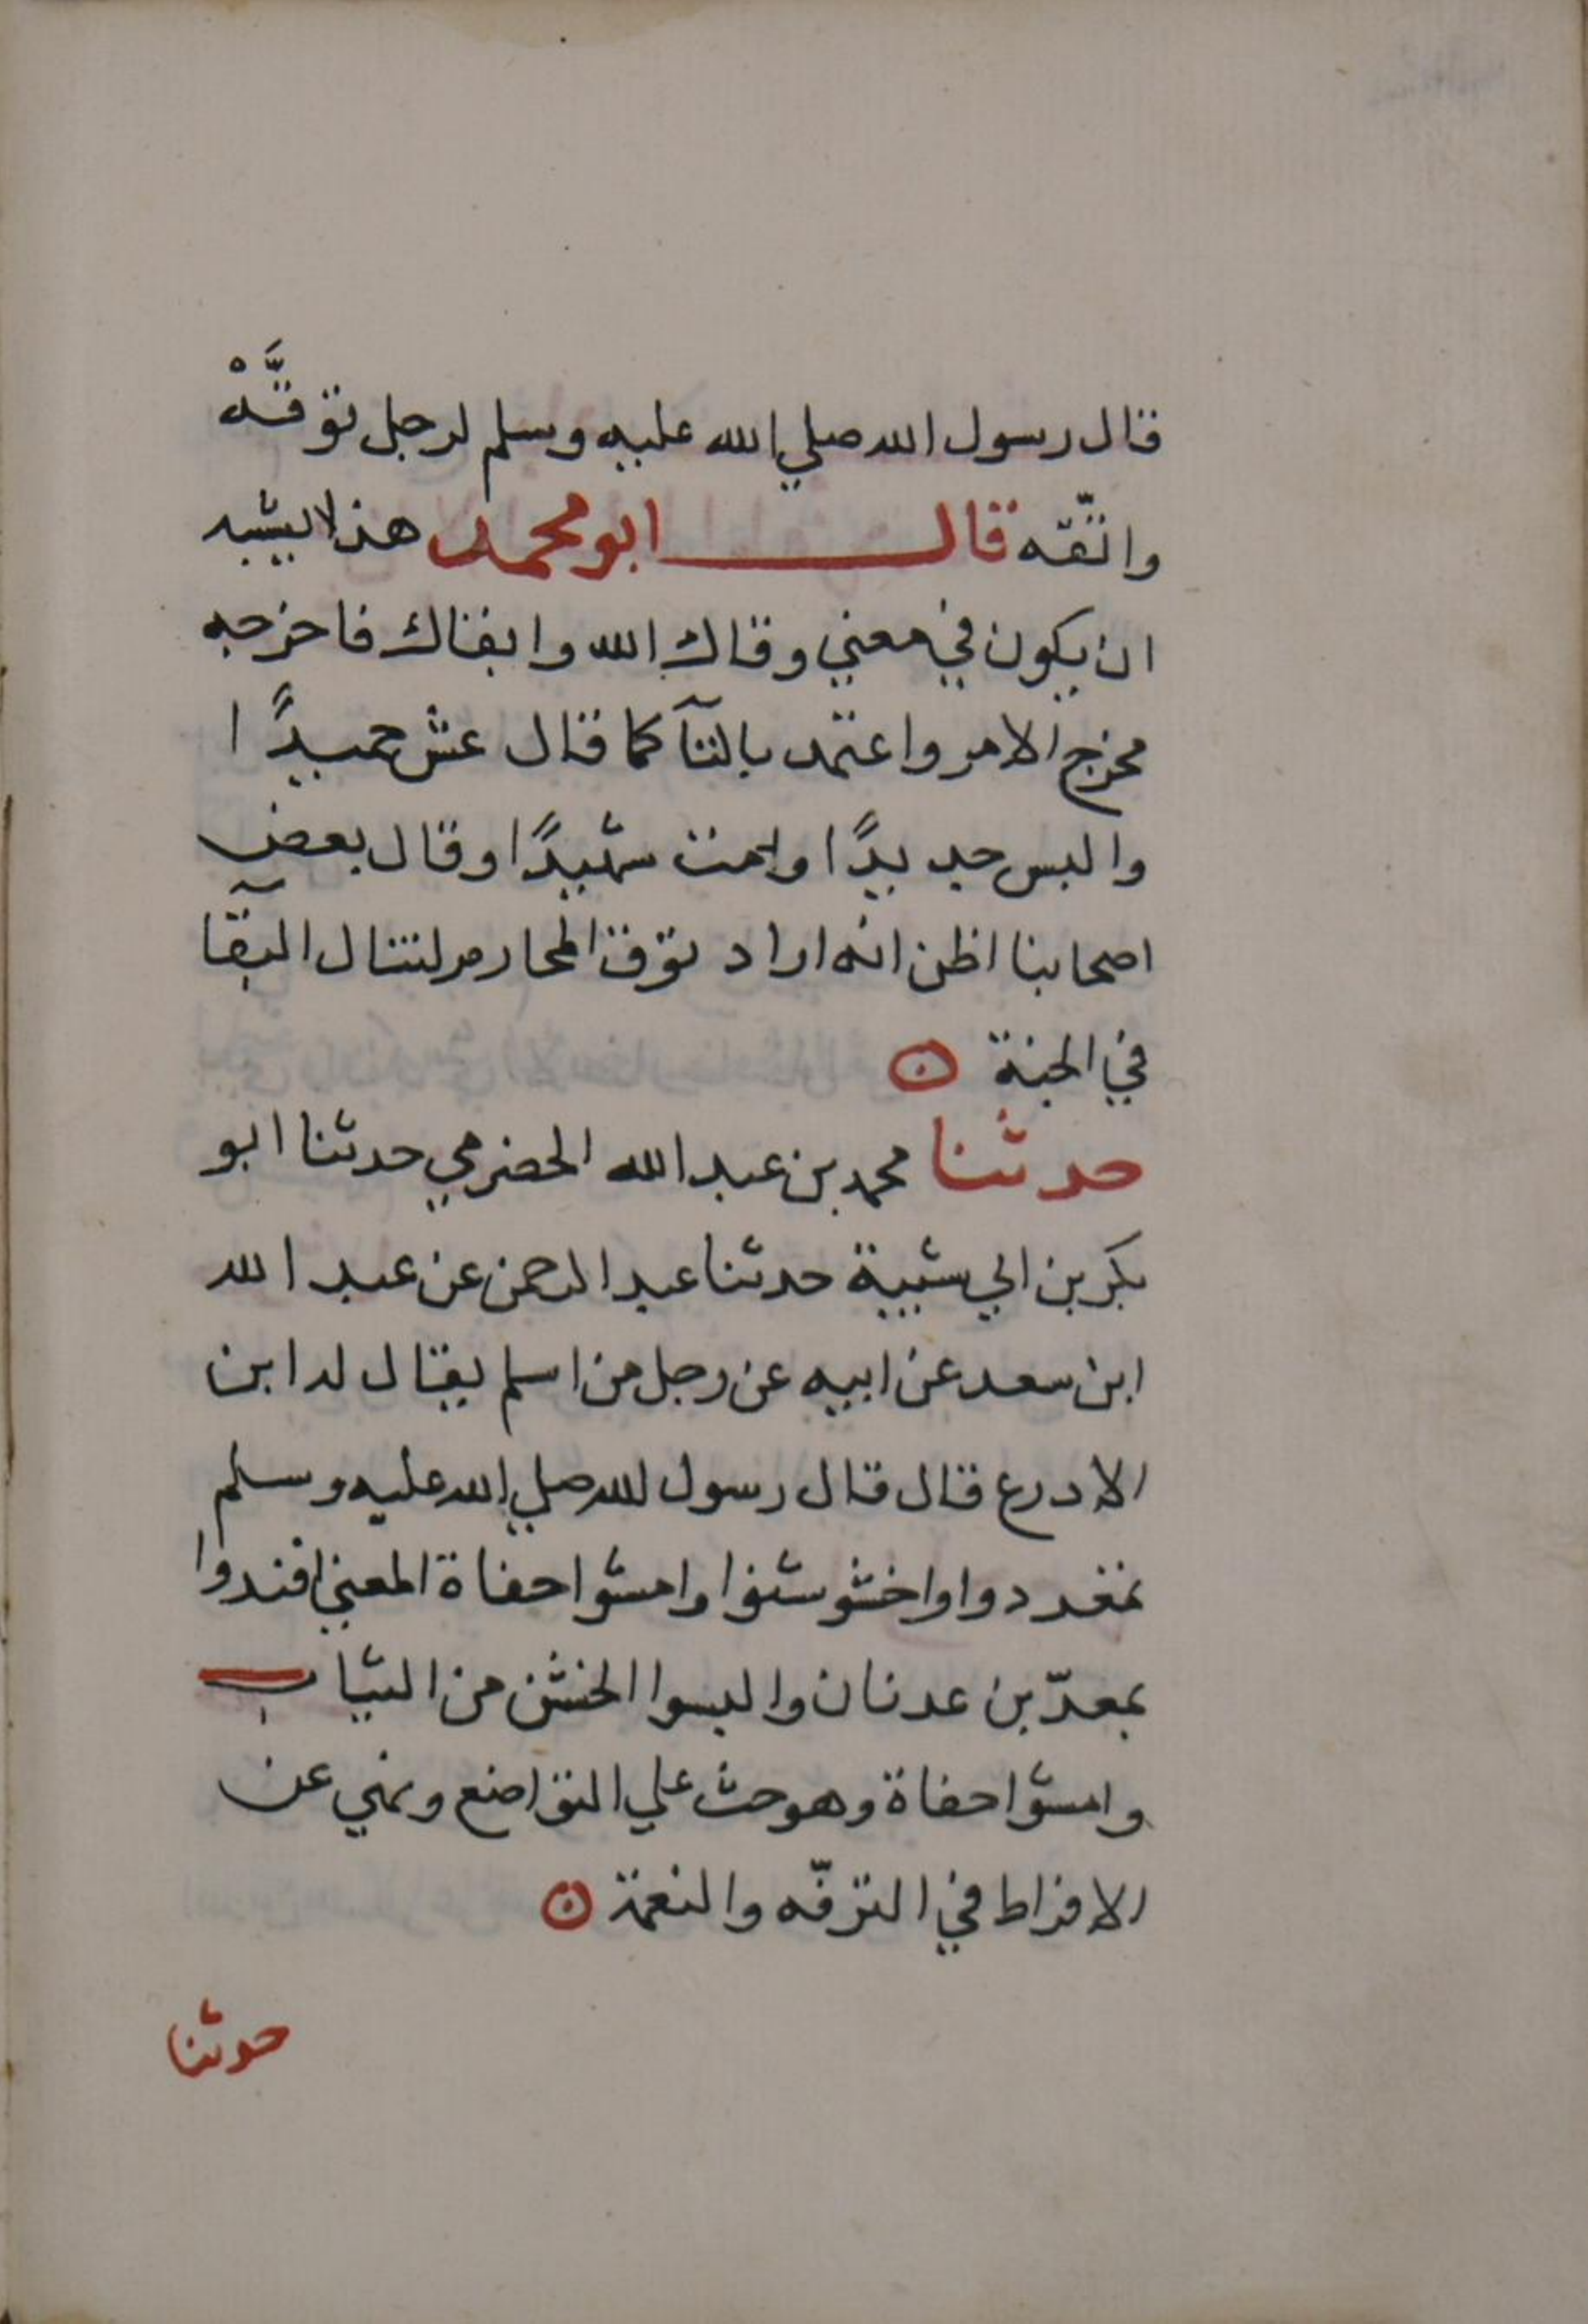 قال رسول الله صلي الله عليه وسلم لرجل توقَّهْ
واتّقه قال ابو محمد هذا يشبه
ان يكون في معني وقاك الله وابقاك فاخرجه
مخرج الامر واعتمد بالتآ كما قال عش حميدًا
والبس جديدًا ومت شهيدًا وقال بعض
اصحابنا اظن انه اراد توق المحارم لتنال البقآ
في الجنة
حدثنا محمد بن عبد الله الحضرمي حدثنا ابو
بكر بن ابي شيبة حدثنا عبد الرحمن عن عبد الله
ابن سعد عن ابيه عن رجل من اسلم يقال له ابن
الادرع قال قال رسول الله صلي الله عليه وسلم
تمعددوا واخشوشنوا وامشوا حفاة المعني اقتدوا
بمعدّ بن عدنان والبسوا الخشن من الثياب
وامشوا حفاة وهو حث علي التواضع ونهي عن
الافراط في الترفّه والنعمة
حدثنا